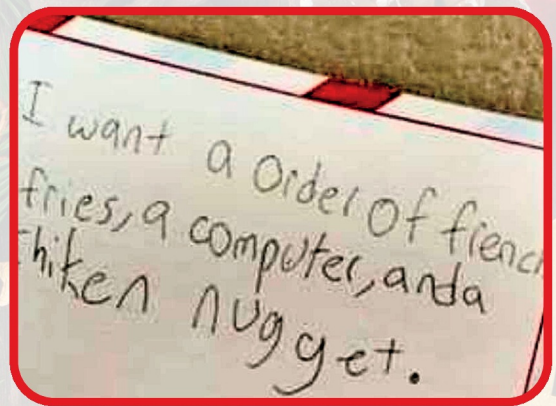 I want a Order of frenc
fries, a computer, and a
chiken nugget.